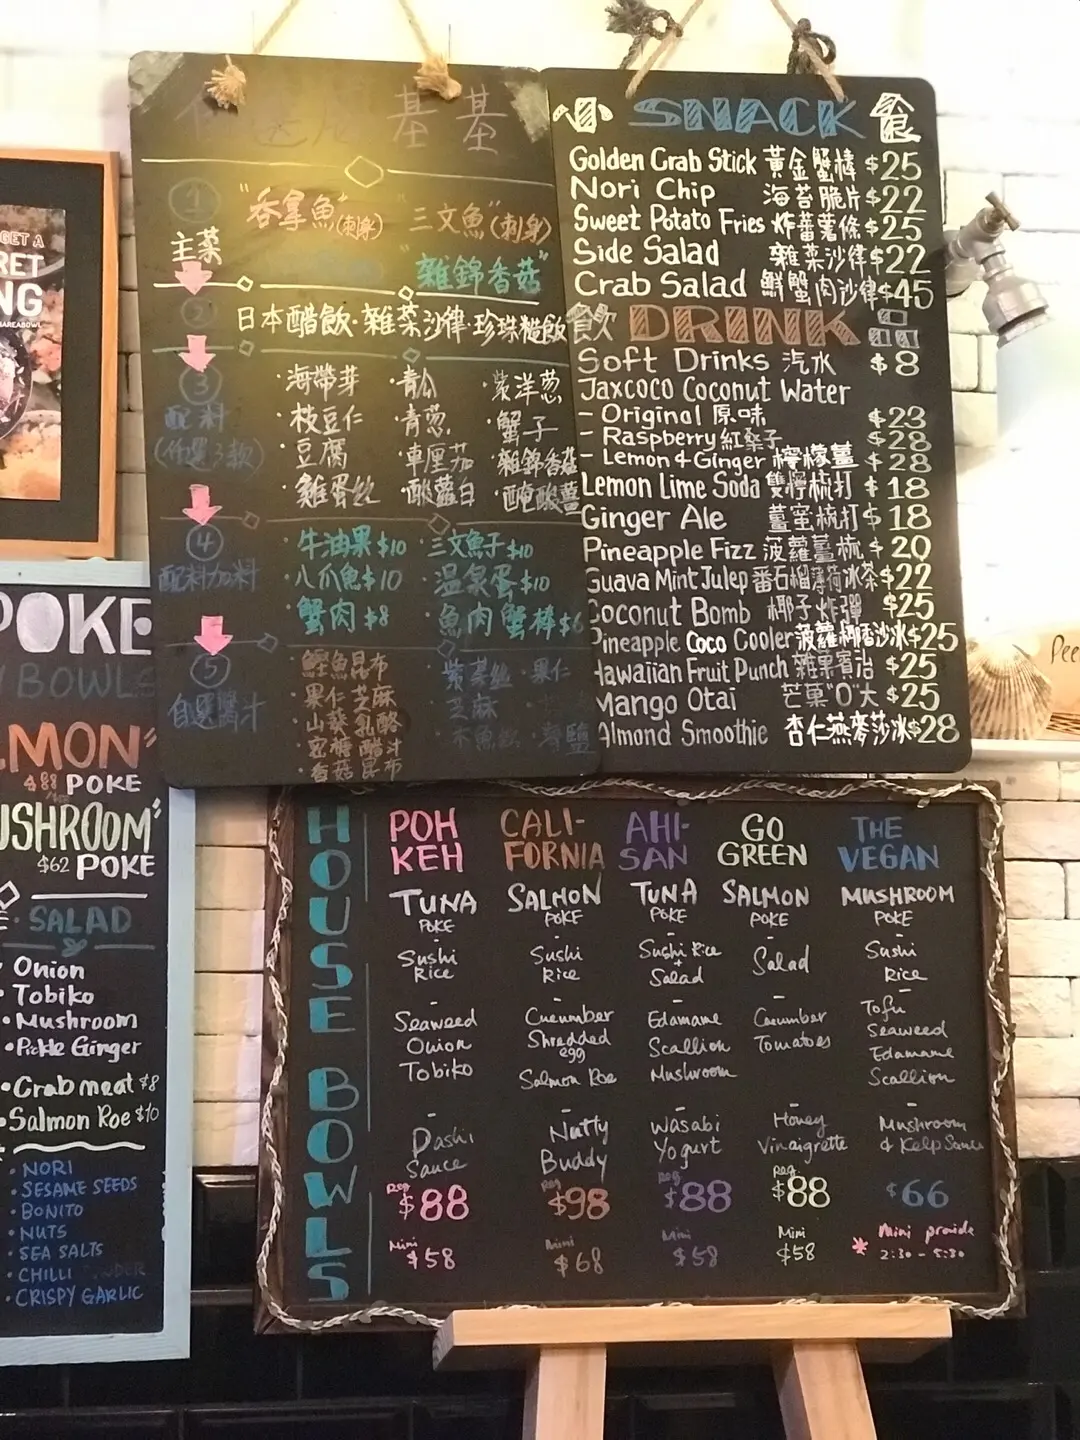 GET A
RET
NG
基基
①
主菜
"吞拿魚"(刺身) "三文魚"(刺身)
"雜錦香菇"
②
日本醋飯·雜菜沙律·珍珠糙飯
③
配料
(任選3款)
·海帶芽 ·青瓜 ·紫洋葱
·枝豆仁 ·青葱 ·蟹子
·豆腐 ·車厘茄 ·雜錦香菇
·雞蛋絲 ·酸蘿白 ·醃酸薑
④
配料加料
·牛油果$10 ·三文魚子$10
·八爪魚$10 ·温泉蛋$10
·蟹肉$8 ·魚肉蟹棒$6
⑤
自選醬汁
·鰹魚昆布 ·紫菜絲 ·果仁
·果仁芝麻 ·芝麻
·山葵乳酪 ·木魚絲 ·海鹽
·蜜糖醋汁
·香菇昆布
小 SNACK 食
Golden Crab Stick 黃金蟹棒 $25
Nori Chip 海苔脆片 $22
Sweet Potato Fries 炸蕃薯條 $25
Side Salad 雜菜沙律 $22
Crab Salad 鮮蟹肉沙律 $45
飲 DRINK 品
Soft Drinks 汽水 $8
Jaxcoco Coconut Water
- Original 原味 $23
- Raspberry 紅桑子 $28
- Lemon & Ginger 檸檬薑 $28
Lemon Lime Soda 雙檸梳打 $18
Ginger Ale 薑蜜梳打 $18
Pineapple Fizz 菠蘿薑梳 $20
Guava Mint Julep 番石榴薄荷冰茶 $22
Coconut Bomb 椰子炸彈 $25
Pineapple Coco Cooler 菠蘿椰香沙冰 $25
Hawaiian Fruit Punch 雜果賓治 $25
Mango Otai 芒菓"O"大 $25
Almond Smoothie 杏仁燕麥莎冰 $28
POKE
BOWLS
MON"
$88 POKE
USHROOM"
$62 POKE
SALAD
· Onion
· Tobiko
· Mushroom
· Pickle Ginger
· Crab meat $8
· Salmon Roe $10
· NORI
· SESAME SEEDS
· BONITO
· NUTS
· SEA SALTS
· CHILLI
· CRISPY GARLIC
HOUSE BOWLS
POH KEH
TUNA
POKE
-
Sushi
Rice
-
Seaweed
Onion
Tobiko
-
Dashi
Sauce
Reg $88
Mini $58
CALI-
FORNIA
SALMON
POKE
-
Sushi
Rice
-
Cucumber
Shredded
egg
Salmon Roe
-
Nutty
Buddy
Reg $98
Mini $68
AHI-
SAN
TUNA
POKE
-
Sushi Rice
+
Salad
-
Edamame
Scallion
Mushroom
-
Wasabi
Yogurt
Reg $88
Mini $58
GO
GREEN
SALMON
POKE
-
Salad
-
Cucumber
Tomatoes
-
Honey
Vinaigrette
Reg $88
Mini $58
THE
VEGAN
MUSHROOM
POKE
-
Sushi
Rice
-
Tofu
Seaweed
Edamame
Scallion
-
Mushroom
& Kelp Sauce
$66
* Mini provide
2:30 - 5:30